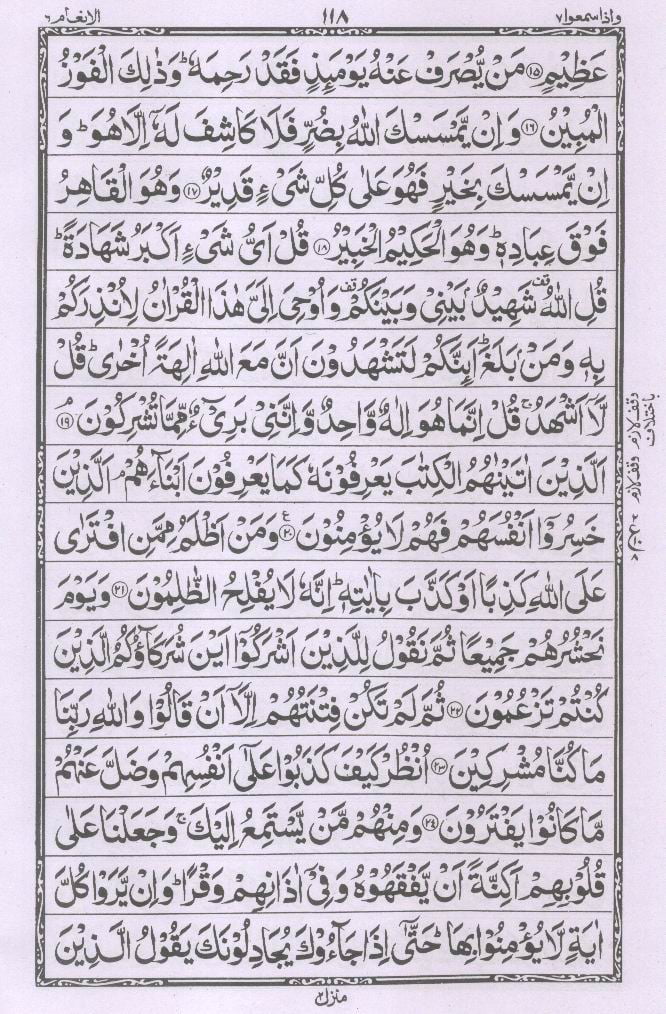 واذاسمعوا٧ ١١٨ الانعام٦
عَظِيْمٍ ۝١٥ مَنْ يُّصْرَفْ عَنْهُ يَوْمَئِذٍ فَقَدْ رَحِمَهٗ ؕ وَذٰلِكَ الْفَوْزُ
الْمُبِيْنُ ۝١٦ وَاِنْ يَّمْسَسْكَ اللّٰهُ بِضُرٍّ فَلَا كَاشِفَ لَهٗۤ اِلَّا هُوَ ؕ وَ
اِنْ يَّمْسَسْكَ بِخَيْرٍ فَهُوَ عَلٰى كُلِّ شَىْءٍ قَدِيْرٌ ۝١٧ وَهُوَ الْقَاهِرُ
فَوْقَ عِبَادِهٖ ؕ وَهُوَ الْحَكِيْمُ الْخَبِيْرُ ۝١٨ قُلْ اَىُّ شَىْءٍ اَكْبَرُ شَهَادَةً ؕ
قُلِ اللّٰهُ قف شَهِيْدٌۢ بَيْنِىْ وَبَيْنَكُمْ قف وَاُوْحِىَ اِلَىَّ هٰذَا الْقُرْاٰنُ لِاُنْذِرَكُمْ
بِهٖ وَمَنْۢ بَلَغَ ؕ اَئِنَّكُمْ لَتَشْهَدُوْنَ اَنَّ مَعَ اللّٰهِ اٰلِهَةً اُخْرٰى ؕ قُلْ
لَّاۤ اَشْهَدُ ۚ قُلْ اِنَّمَا هُوَ اِلٰهٌ وَّاحِدٌ وَّاِنَّنِىْ بَرِىْٓءٌ مِّمَّا تُشْرِكُوْنَ ۝١٩ ۘ
اَلَّذِيْنَ اٰتَيْنٰهُمُ الْكِتٰبَ يَعْرِفُوْنَهٗ كَمَا يَعْرِفُوْنَ اَبْنَآءَهُمْ ۘ اَلَّذِيْنَ
خَسِرُوْۤا اَنْفُسَهُمْ فَهُمْ لَا يُؤْمِنُوْنَ ۝٢٠ ع وَمَنْ اَظْلَمُ مِمَّنِ افْتَرٰى
عَلَى اللّٰهِ كَذِبًا اَوْ كَذَّبَ بِاٰيٰتِهٖ ؕ اِنَّهٗ لَا يُفْلِحُ الظّٰلِمُوْنَ ۝٢١ وَيَوْمَ
نَحْشُرُهُمْ جَمِيْعًا ثُمَّ نَقُوْلُ لِلَّذِيْنَ اَشْرَكُوْۤا اَيْنَ شُرَكَآؤُكُمُ الَّذِيْنَ
كُنْتُمْ تَزْعُمُوْنَ ۝٢٢ ثُمَّ لَمْ تَكُنْ فِتْنَتُهُمْ اِلَّاۤ اَنْ قَالُوْا وَاللّٰهِ رَبِّنَا
مَا كُنَّا مُشْرِكِيْنَ ۝٢٣ اُنْظُرْ كَيْفَ كَذَبُوْا عَلٰٓى اَنْفُسِهِمْ وَضَلَّ عَنْهُمْ
مَّا كَانُوْا يَفْتَرُوْنَ ۝٢٤ وَمِنْهُمْ مَّنْ يَّسْتَمِعُ اِلَيْكَ ۚ وَجَعَلْنَا عَلٰى
قُلُوْبِهِمْ اَكِنَّةً اَنْ يَّفْقَهُوْهُ وَفِىْۤ اٰذَانِهِمْ وَقْرًا ؕ وَاِنْ يَّرَوْا كُلَّ
اٰيَةٍ لَّا يُؤْمِنُوْا بِهَا ؕ حَتّٰٓى اِذَا جَآءُوْكَ يُجَادِلُوْنَكَ يَقُوْلُ الَّذِيْنَ
وقف لازم باختلاف
وقف لازم
منزل٢